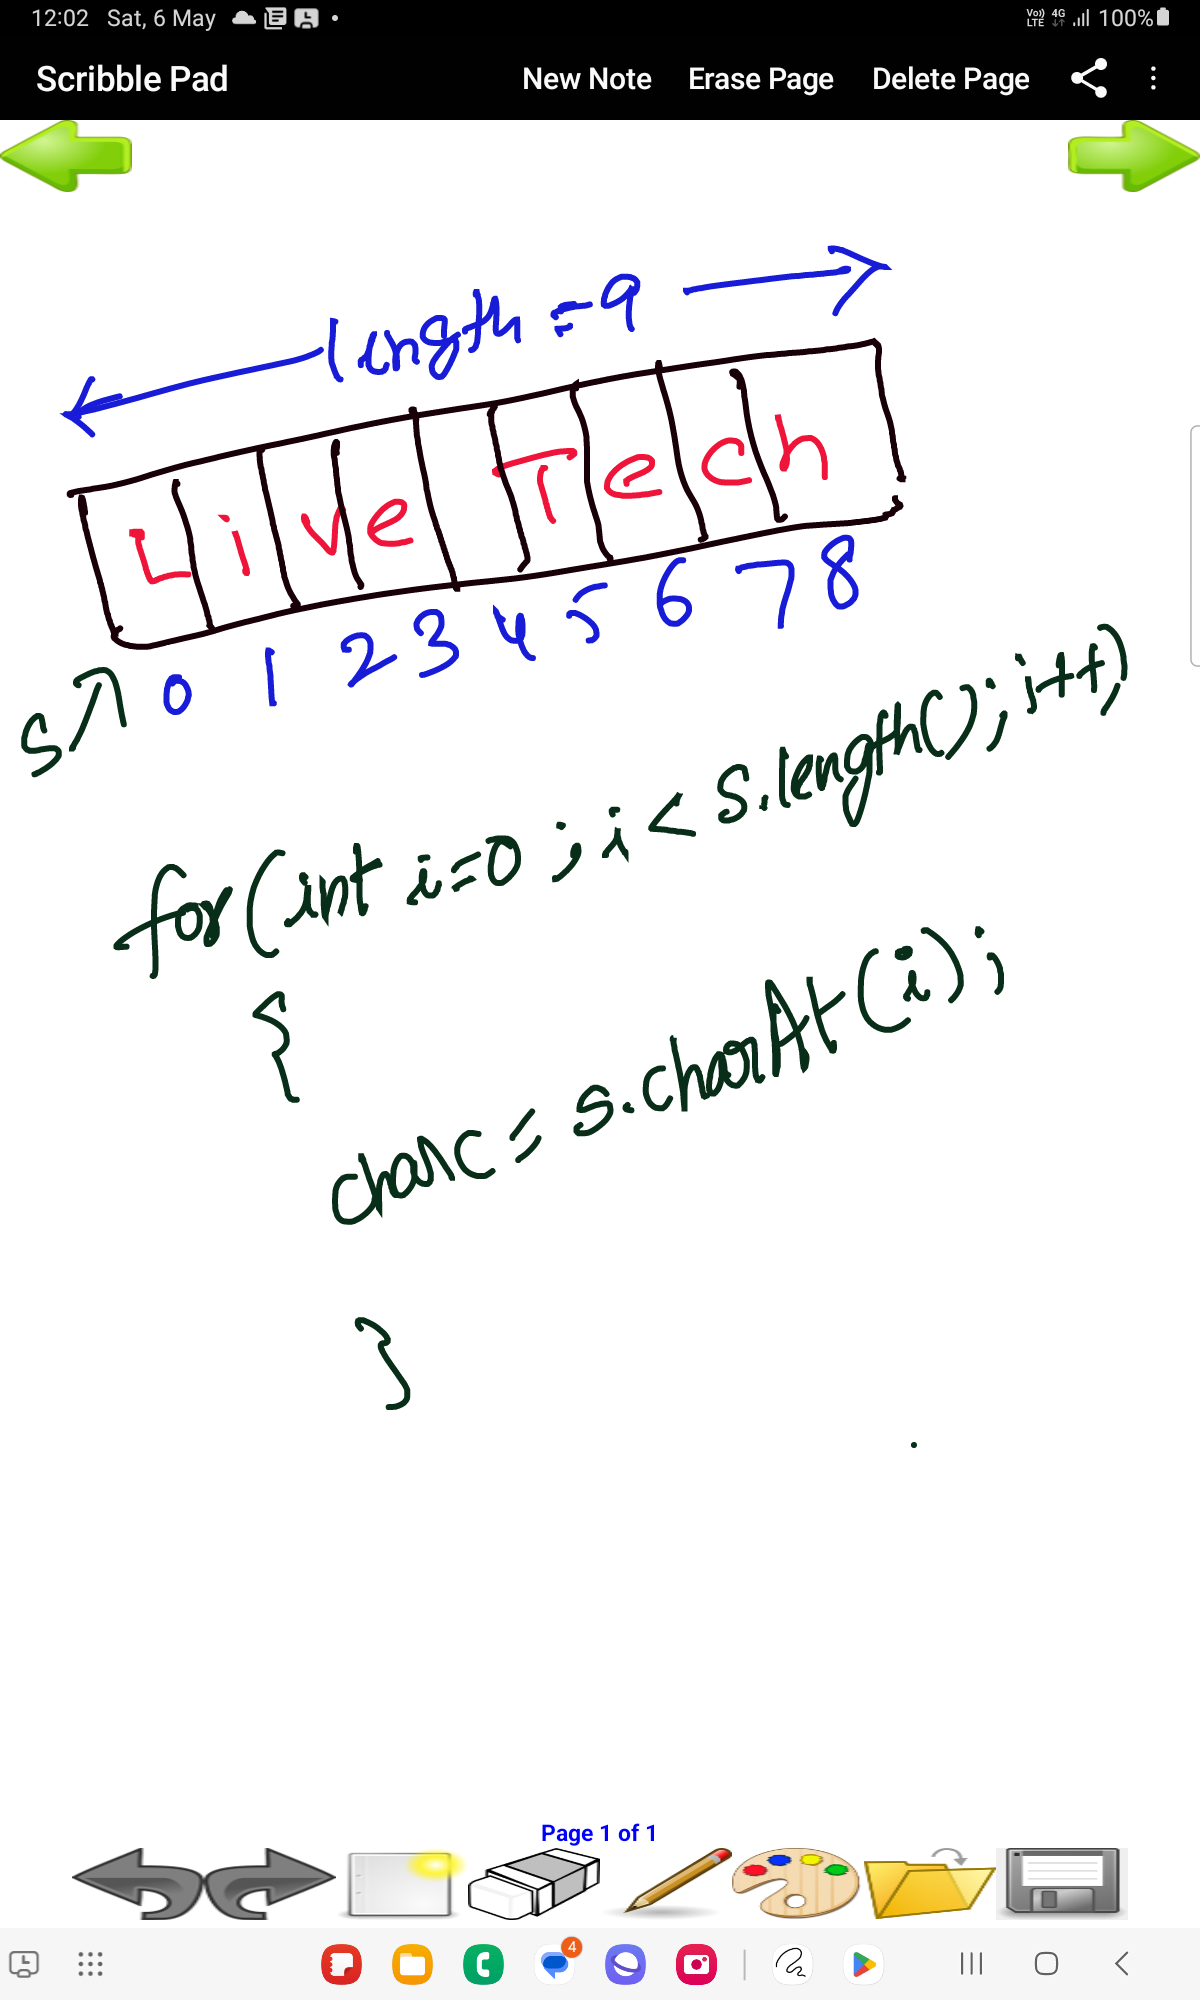 12:02 Sat, 6 May
Vo)) LTE 4G 100%
Scribble Pad New Note Erase Page Delete Page
length = 9
Live Tech
0 1 2 3 4 5 6 7 8
S
for(int i=0; i< s.length(); i++)
{
char c = s.charAt(i);
}
Page 1 of 1
4